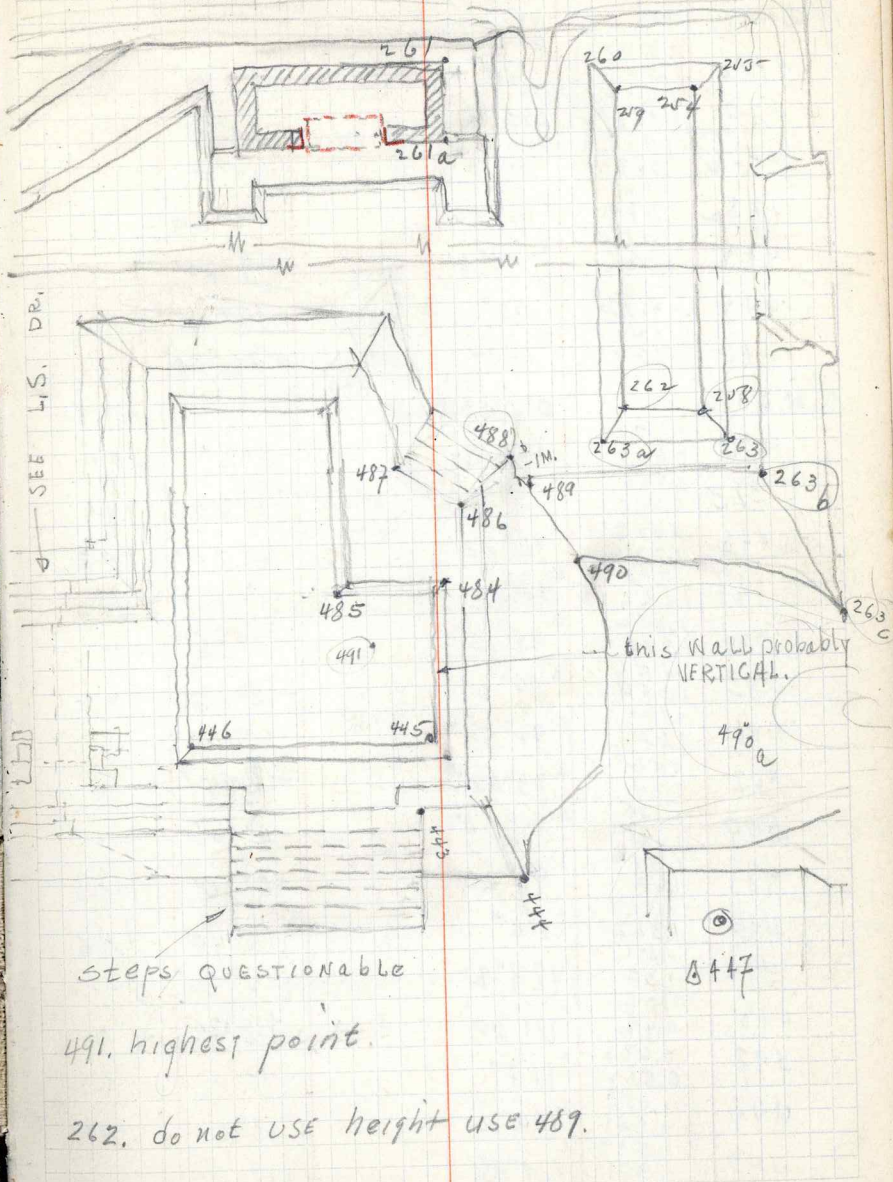 261
261a
260
255
259
254
SEE L.S. DR.
262
258
263a
263
263b
488
-1M.
487
489
486
490
263c
484
485
491
this WALL probably
VERTICAL.
446
445
490a
443
444
447
steps QUESTIONable
491. highest point.
262. do not USE height USE 489.